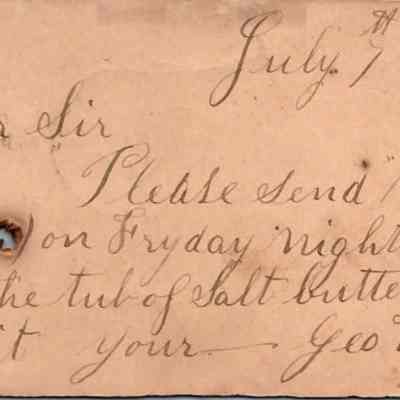 July 7th
r Sir
Please send
on Fryday night
he tub of Salt butte
it your Geo